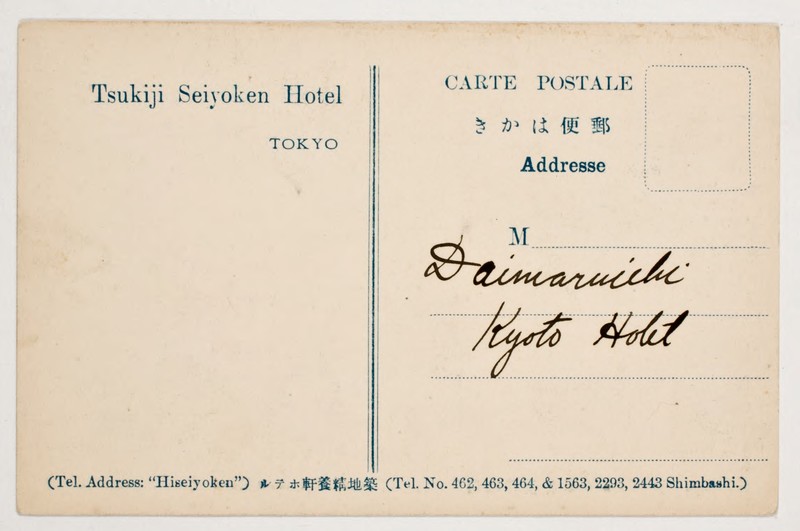 Tsukiji Seiyoken Hotel
TOKYO
CARTE POSTALE
郵便はかき
Addresse
M
Daimaruichi
Kyoto Hotel
(Tel. Address: "Hiseiyoken") 築地精養軒ホテル (Tel. No. 462, 463, 464, & 1563, 2293, 2443 Shimbashi.)